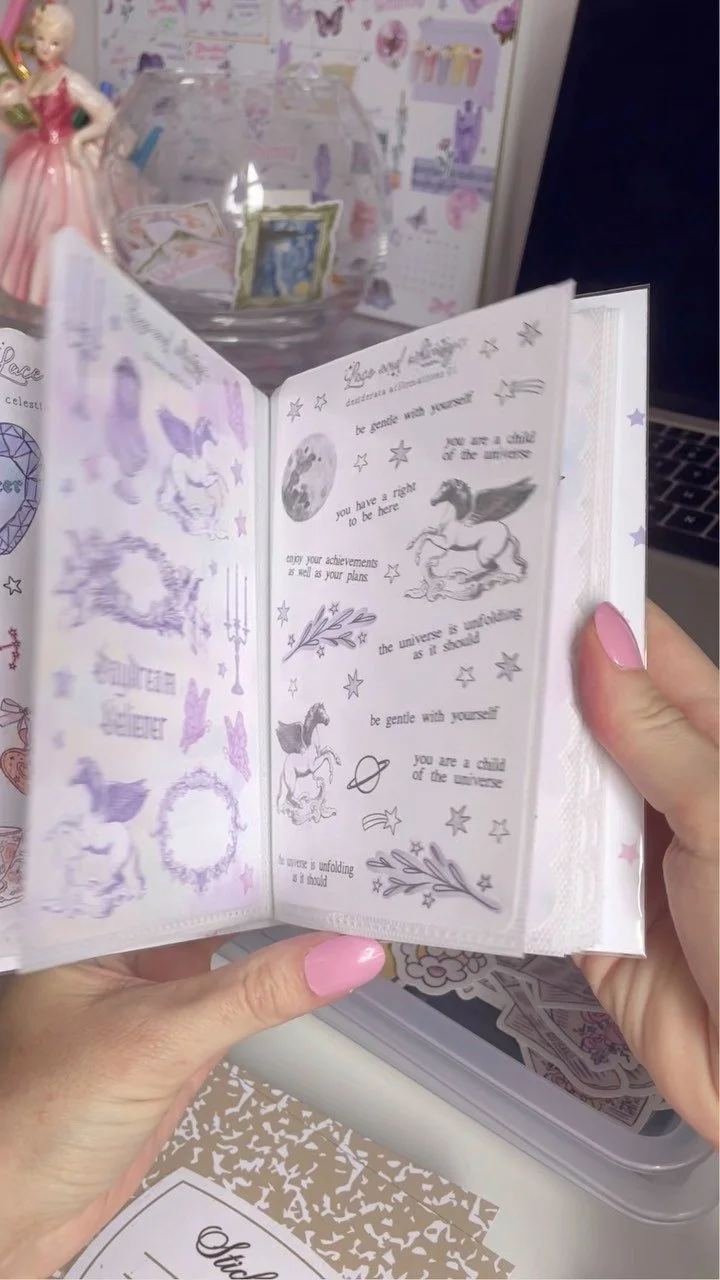 Lace
celesti
Daydream
Believer
Lace and
desiderata affirmations 01
be gentle with yourself
you are a child
of the universe
you have a right
to be here.
enjoy your achievements
as well as your plans.
the universe is unfolding
as it should
be gentle with yourself
you are a child
of the universe
the universe is unfolding
as it should
Stick